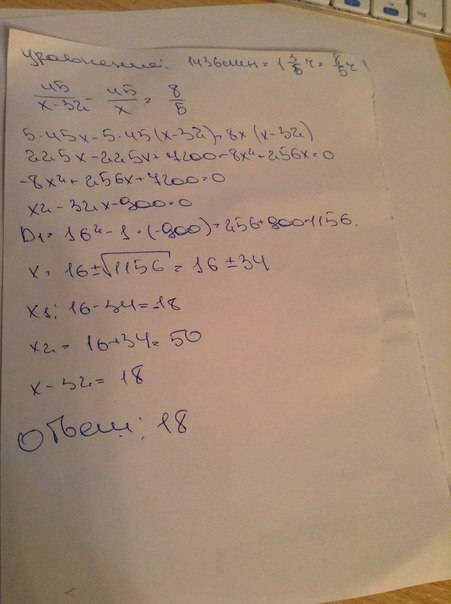 уравнение: 1ч36мин = 1 3/5 ч = 8/5 ч
45/x-32 - 45/x = 8/5
5·45x-5·45(x-32)=8x(x-32)
225x-225x+7200-8x²+256x=0
-8x²+256x+7200=0
x²-32x-900=0
D1=16²-1·(-900)=256+900=1156.
x=16±√1156=16±34
x1=16-34=-18
x2=16+34=50
x-32=18
Ответ: 18